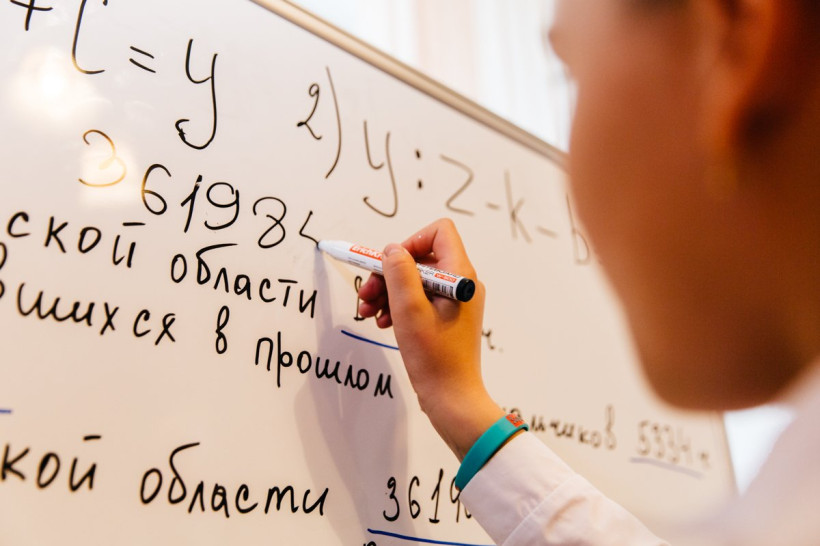 + C = y
2) y : z - k - b
3 61984
ской области
вшихся в прошлом
мальчиков 5994
кой области 3619